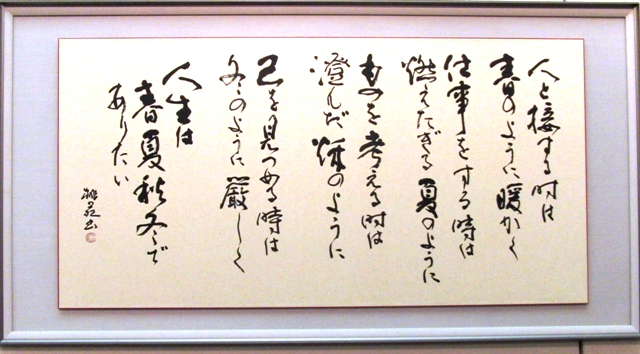 人と接する時は
春のように暖かく
仕事をする時は
燃えたぎる夏のように
ものを考える時は
澄んだ秋のように
己を見つめる時は
冬のように厳しく
人生は
春夏秋冬で
ありたい